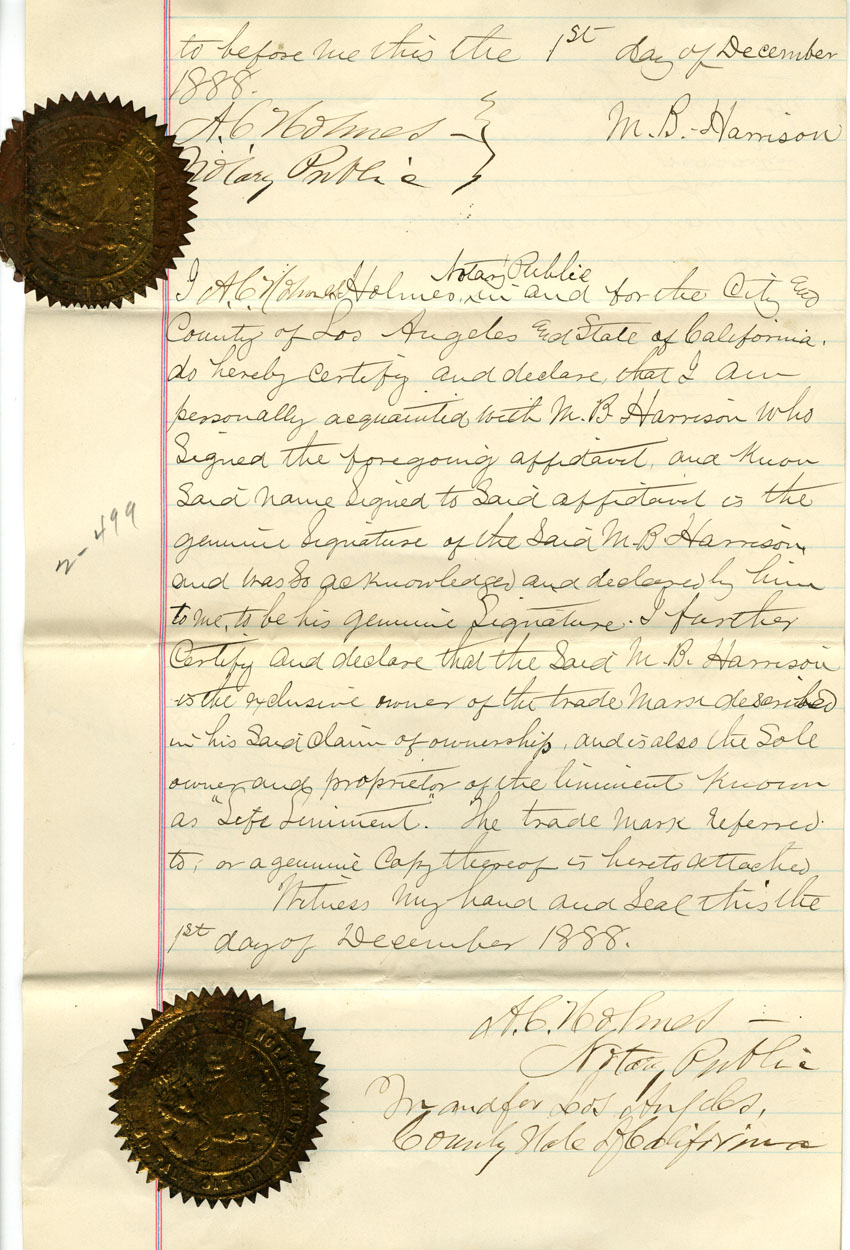 to before me this the 1st day of December
1888.
A.C. Holmes
Notary Public
M. B. Harrison
Notary Public
I A.C. Holmes Holmes, in and for the City and
County of Los Angeles and State of California.
do hereby certify and declare, that I am
personally acquainted with M. B. Harrison who
Signed the foregoing affidavit, and know
Said name Signed to Said affidavit is the
genuine Signature of the Said M. B. Harrison,
and was So acknowledged and declared by him
to me, to be his genuine Signature. I further
Certify and declare that the Said M. B. Harrison
is the exclusive owner of the trade Mark described
in his Said claim of ownership, and is also the Sole
owner and proprietor of the liniment Known
as "Life Liniment". The trade Mark referred
to; or a genuine Copy thereof is hereto attached
Witness My hand and Seal this the
1st day of December 1888.
2-499
A.C. Holmes
Notary Public
In and for Los Angeles,
County State of California